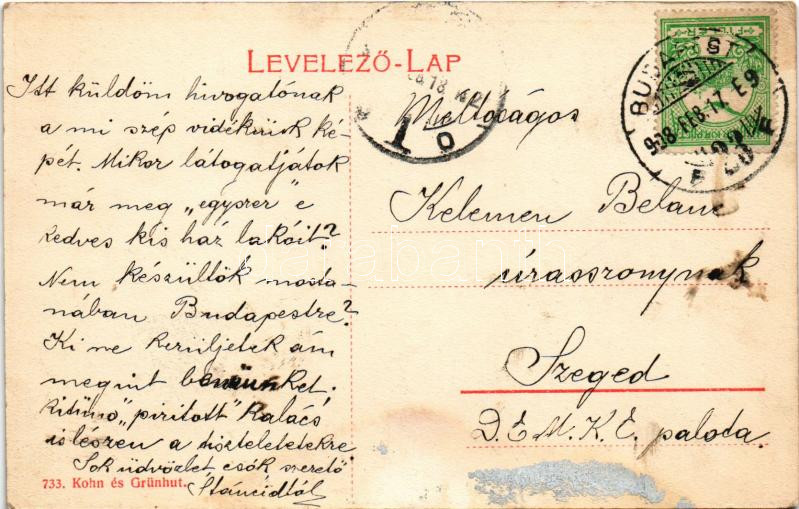 LEVELEZŐ-LAP
Itt küldöm hivogatónak
a mi szép vidékünk ké-
pét. Mikor látogatjátok
már meg „egyszer" e
kedves kis ház lakóit?
Nem készültök mosta-
nában Budapestre?
Ki ne kerüljetek ám
megint bennünket.
Kitünő „piritott" kalács
is lészen a tiszteletetekre.
Sok üdvözlet csók szerető
733. Kohn és Grünhut.
Méltóságos
Kelemen Beláné
úrasszonynak
Szeged
D.E.M.K.E. palota.
BUDAPEST
FILLÉR